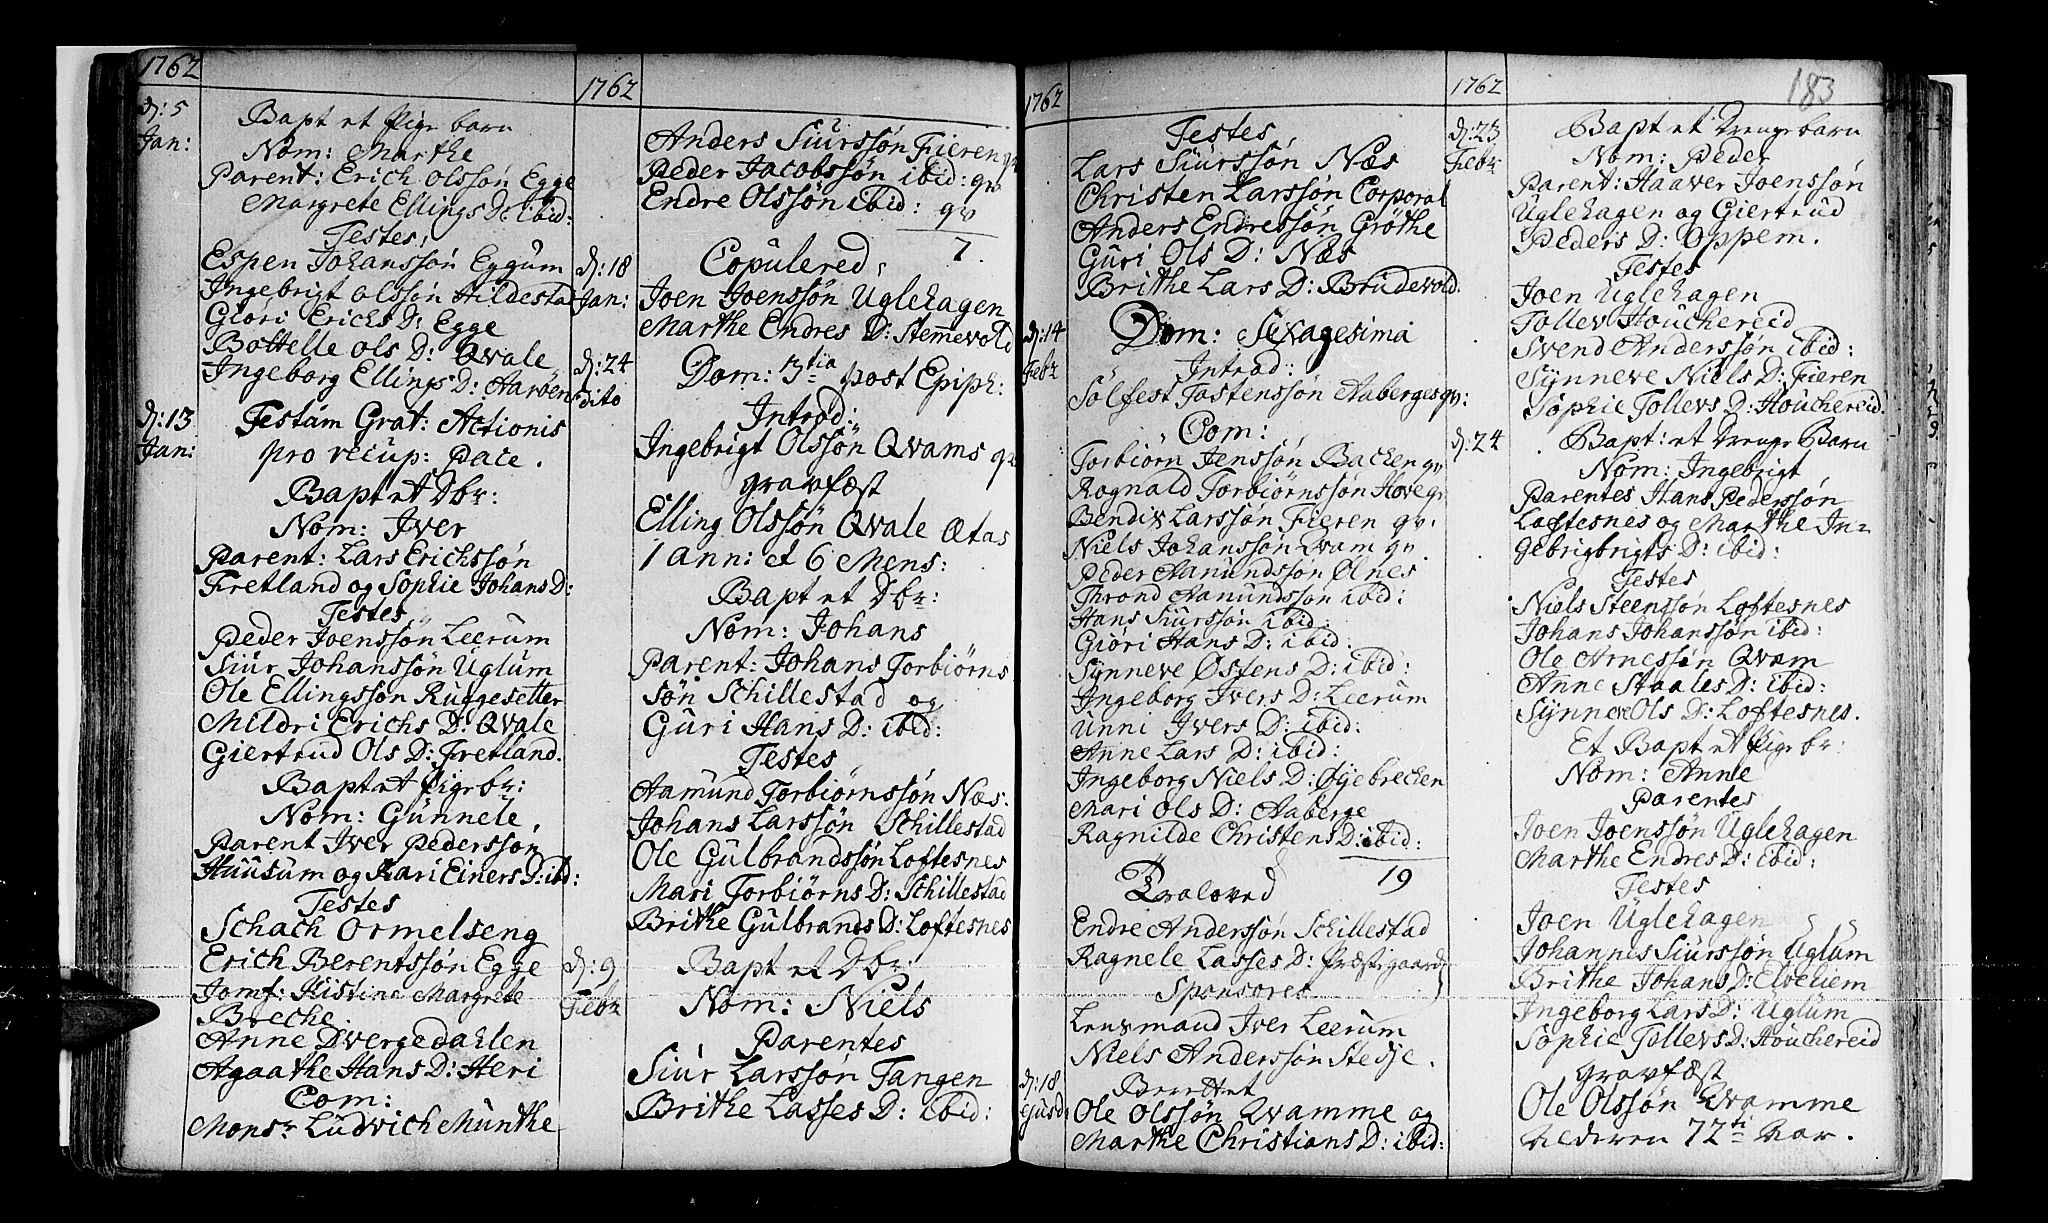 1762
d: 5
Jan:
Bapt et Pige barn
Nom: Marthe
Parent: Erich Olssøn Egge
Margrete Ellings D: ibid:
Testes,
Espen Johanssøn Eggum
Ingebrigt Olssøn Hildestad
Giøri Erichs D: Egge
Bottelle Ols D: Qvale
Ingeborg Ellings D: Aarøen
d: 13
Jan:
Festum Grat: Actionis
pro recup: Pace.
Bapt et Dbr:
Nom: Iver
Parent: Lars Erichssøn
Fretland og Sophie Johans D:
Testes
Peder Joenssøn Leerum
Siur Johanssøn Uglum
Ole Ellingssøn Ruggesetter
Mildri Erichs D: Qvale
Giertrud Ols D: Fretland.
Bapt et Pigebr:
Nom: Gunnele,
Parent Iver Pederssøn,
Huusum og Kari Einers D: ibd:
Testes
Schach Ormelseng
Erich Berentssøn Egge
Jomf: Kistine Margrete
Breche.
Anne Dvergedahlen
Agaathe Hans D: Heri
Com:
Monsr Ludvich Munthe
1762
Anders Siurssøn Fieren qv
Peder Jacobssøn ibid: qv
Endre Olssøn ibid: qv
7.
d: 18
Jan:
Copulered,
Joen Joenssøn Uglehagen
Marthe Endres D: Stemmevold
d: 24
dito
Dom: 3tia post Epiph:
Introd:
Ingebrigt Olssøn Qvams qv
gravfæst
Elling Olssøn Qvale Ætas
1 ann: et 6 Mens:
Bapt et Dbr:
Nom: Johans
Parent: Johans Torbiørns
søn Schillestad og
Guri Hans D: ibid:
Testes
Aamund Torbiørnssøn Næs.
Johans Larssøn Schillestad
Ole Gulbrandssøn Loftesnes
Mari Torbiørns D: Schillestad
Brithe Gulbrands D: Loftesnes
d: 9
Febr
Bapt et Dbr
Nom: Niels
Parentes
Siur Larssøn Tangen
Brithe Lasses D: ibid:
1762
Testes
Lars Siurssøn Næs
Christen Larssøn Corporal
Anders Endressøn Grøthe
Guri Ols D: Næs
Brithe Lars D: Brudevold.
d: 14
Febr
Dom: Sexagesima
Introd:
Sølfest Tostenssøn Aaberges qv:
Com:
Torbiørn Jenssøn Bachen qv
Rognald Torbiørnssøn Hove qv
Bendix Larssøn Fieren qv.
Niels Johanssøn Qvam qv
Peder Aamundssøn Ølnes
Thrond Aamundssøn ibid:
Hans Siurssøn ibid:
Giøri Hans D: ibid:
Synneve Østens D: ibid:
Ingeborg Ivers D: Leerum
Unni Ivers D: ibid:
Anne Lars D: ibid:
Ingeborg Niels D: Øyebrechen
Mari Ols D: Aaberge
Ragnilde Christens D: ibid:
19
Troloved
Endre Anderssøn Schillestad
Ragnele Lasses D: Præstegaard
Sponsores
Lensmand Iver Leerum
Niels Anderssøn Stedje.
d: 18
Ole Olssøn Qvamme og
Marthe Christians D: ibid:
1762
183
d: 23
Febr
Bapt et Drengebarn
Nom: Peder
Parent: Haaver Joenssøn
Uglehagen og Giertrud
Peders D: Oppem.
Testes
Joen Uglehagen
Tollev Houchereid
Svend Anderssøn ibid:
Synneve Niels D: Fieren
Sophie Tollevs D: Houchereid.
d: 24
Bapt: et Drenge Barn
Nom: Ingebrigt
Parentes Hans Pederssøn
Loftesnes og Marthe In=
gebrigbrigts D: ibid:
Testes
Niels Steenssøn Loftesnes
Johans Johanssøn ibid:
Ole Arnessøn Qvam
Anne Staales D: ibid:
Synneve Ols D: Loftesnes.
Et Bapt et Pige br:
Nom: Anne
Parentes
Joen Joenssøn Uglehagen
Marthe Endres D: ibid:
Testes
Joen Uglehagen
Johannes Siurssøn Uglum
Brithe Johans D: Elvehiem
Ingeborg Lars D: Uglum
Sophie Tollevs D: Houchereid
gravfæst
Ole Olssøn Qvamme
Alderen 72 Aar.